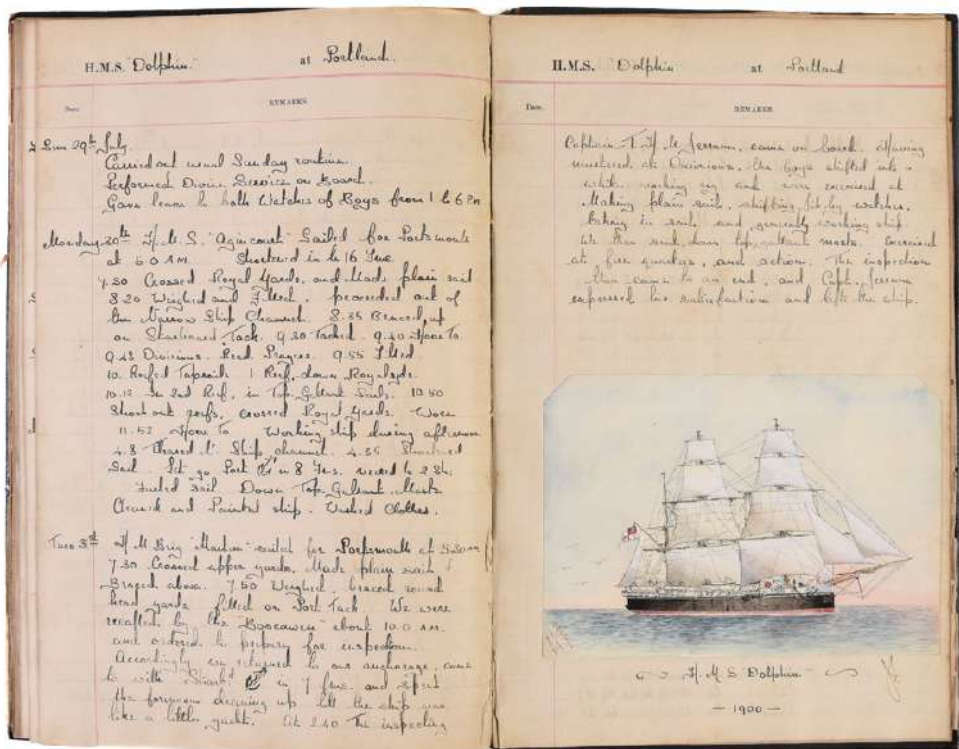 H.M.S. "Dolphin." at Portland.
Date REMARKS
Sun 29th July
Carried out usual Sunday routine.
Performed Divine Service on Board.
Gave leave to both Watches of Boys from 1 to 6 PM
Monday 30th H.M.S. "Agincourt" Sailed for Portsmouth
at 5 0 AM. Shortened in to 16 Fms
7.30 Crossed Royal Yards, and Made plain sail
8.20 Weighed and Filled, proceeded out of
the Narrow Ship Channel. 8.35 Braced up
on Starboard Tack. 9.20 Tacked. 9.40 Hove To
9.45 Divisions. Read Prayers. 9.55 Filled.
10. Reefed Topsails 1 Reef, down Royal yds.
10.12 In 2nd Reef, in Top Gallant Sails. 10.50
Shook out reefs, crossed Royal Yards. Wore
11.52 Hove To Working ship during afternoon
4.8 Ship channel. 4.35 Shortened
Sail. Let go Port in 8 Fms. veered to 2 Sh.
Furled Sail Down Top Gallant Masts
Cleaned and Painted ship. Washed Clothes.
Tues H.M Brig "Martin" sailed for Portsmouth at 5.20 AM
7.30 Crossed upper yards, Made plain sail
Braced above. 7.50 Weighed, braced round
head yards filled on Port Tack. We were
recalled by the "Boscawen" about 10.0 AM.
and ordered to prepare for inspection.
Accordingly we returned to our anchorage, came
to with Starbd in 7 fms. and spent
the forenoon cleaning up till the ship was
like a little yacht. At 2.40 The inspecting
H.M.S. Dolphin at Portland
Date. REMARKS
Captain came on board. Having
mustered at Divisions, the boys shifted into
white working rig and were exercised at
Making plain sail, shifting jib by watches,
taking in sail and generally working ship
We then sent down top gallant masts. exercised
at fire quarters, and action. The inspection
then came to an end, and Capt. Jerram
expressed his satisfaction and left the ship.
H.M.S Dolphin
— 1900 —